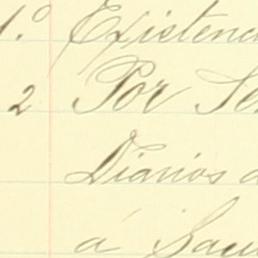 1.º Existenc
2 Por Se
Diarios d
á Sau